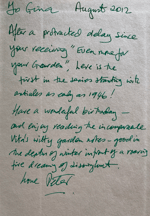 To Gina August 2012
After a protracted delay since
your receiving "Even more for
your Garden" here is the
first in the series starting with
articles as early as 1946!
Have a wonderful birthday –
and enjoy reading the incomparable
Vita's witty garden notes – good in
the depths of winter in front of a roaring
fire dreaming of
love Peter